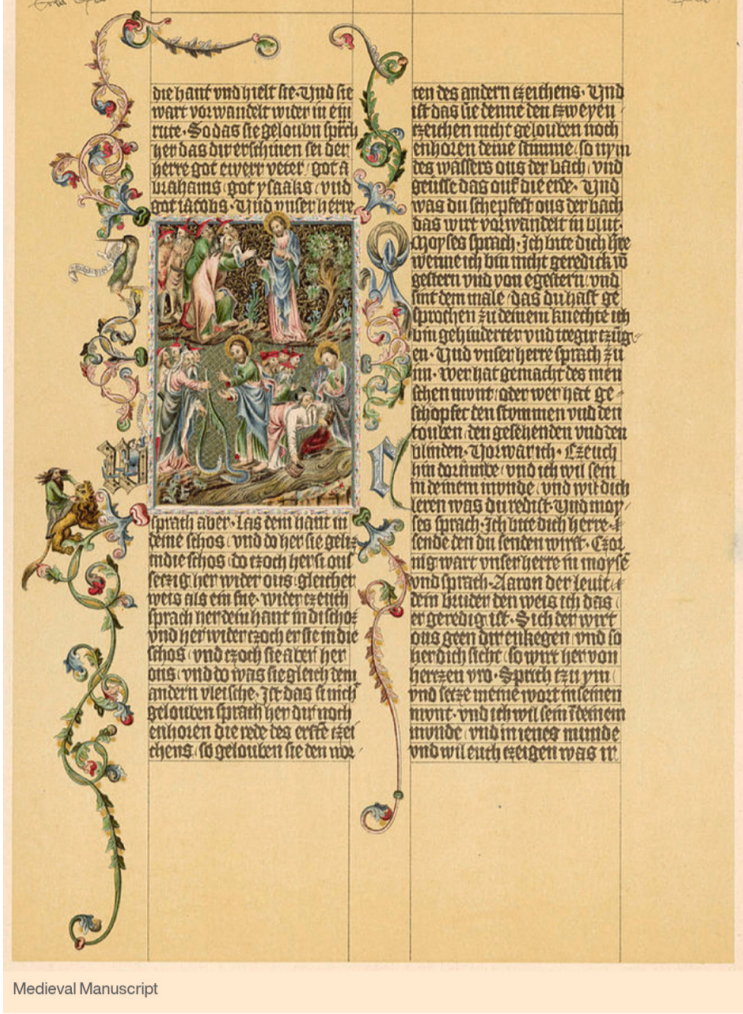 die hant vnd hielt sie · Vnd sie
wart vorwandelt wider in ein
rute · So das sie geloubn sprch
her das dir erschinen sei der
herre got ewerr veter / got a
brahams / got ysaaks / vnd
got iacobs · Vnd vnser herre
sprach aber · Las dein hant in
deine schos / vnd do her sie
in die schos / do czoch her si ous
setzig her wider ous / gleicher
weis als ein sne · wider czeuch
sprach her dein hant in di schoz
vnd her wider czoch er sie in die
schos / vnd czoch sie aber her
ous / vnd do was sie gleich dem
andern vleische · Ist das si nicht
gelouben sprach her dir noch
enhoren die rede des erste czei
chens / so gelouben sie den wor
ten des andern czeichens · Vnd
ist das sie denne den czweyen
czeichen nicht gelouben noch
enhoren deine stimme / so nym
des wassers ous der bach / vnd
geusse das ouf die erde · Vnd
was du schepfest ous der bach
das wirt vorwandelt in blut ·
Moyses sprach · Ich bite dich h're
wenne ich bin nicht geredick vo
gestern vnd von egestern / vnd
sint dem male / das du hast ge
sprochen zu deinem knechte ich
bin gehinderter vnd czüg
en · Vnd vnser herre sprach zu
im · Wer hat gemacht des men
schen mont / oder wer hat ge
schopfet den stommen vnd den
touben / den gesehenden vnd den
blinden · Vorwar ich · Czeuch
hin dorumbe / vnd ich wil sein
in deinem mvnde / vnd wil dich
leren was du redist · Vnd moy
ses sprach · Ich bite dich herre ·
sende den du senden wirst · Czor
nig wart vnser herre in moyse
vnd sprach · Aaron der leuit
dein bruder den weis ich das
er geredig ist · Sich der wirt
ous geen dir enkegen / vnd so
her dich sicht / so wirt her von
herczen vro · Sprich czu ym
vnd secze meine wort in seinen
mvnt · vnd ich wil sein in deinem
mvnde / vnd in ienes munde
vnd wil euch czeigen was ir
Medieval Manuscript